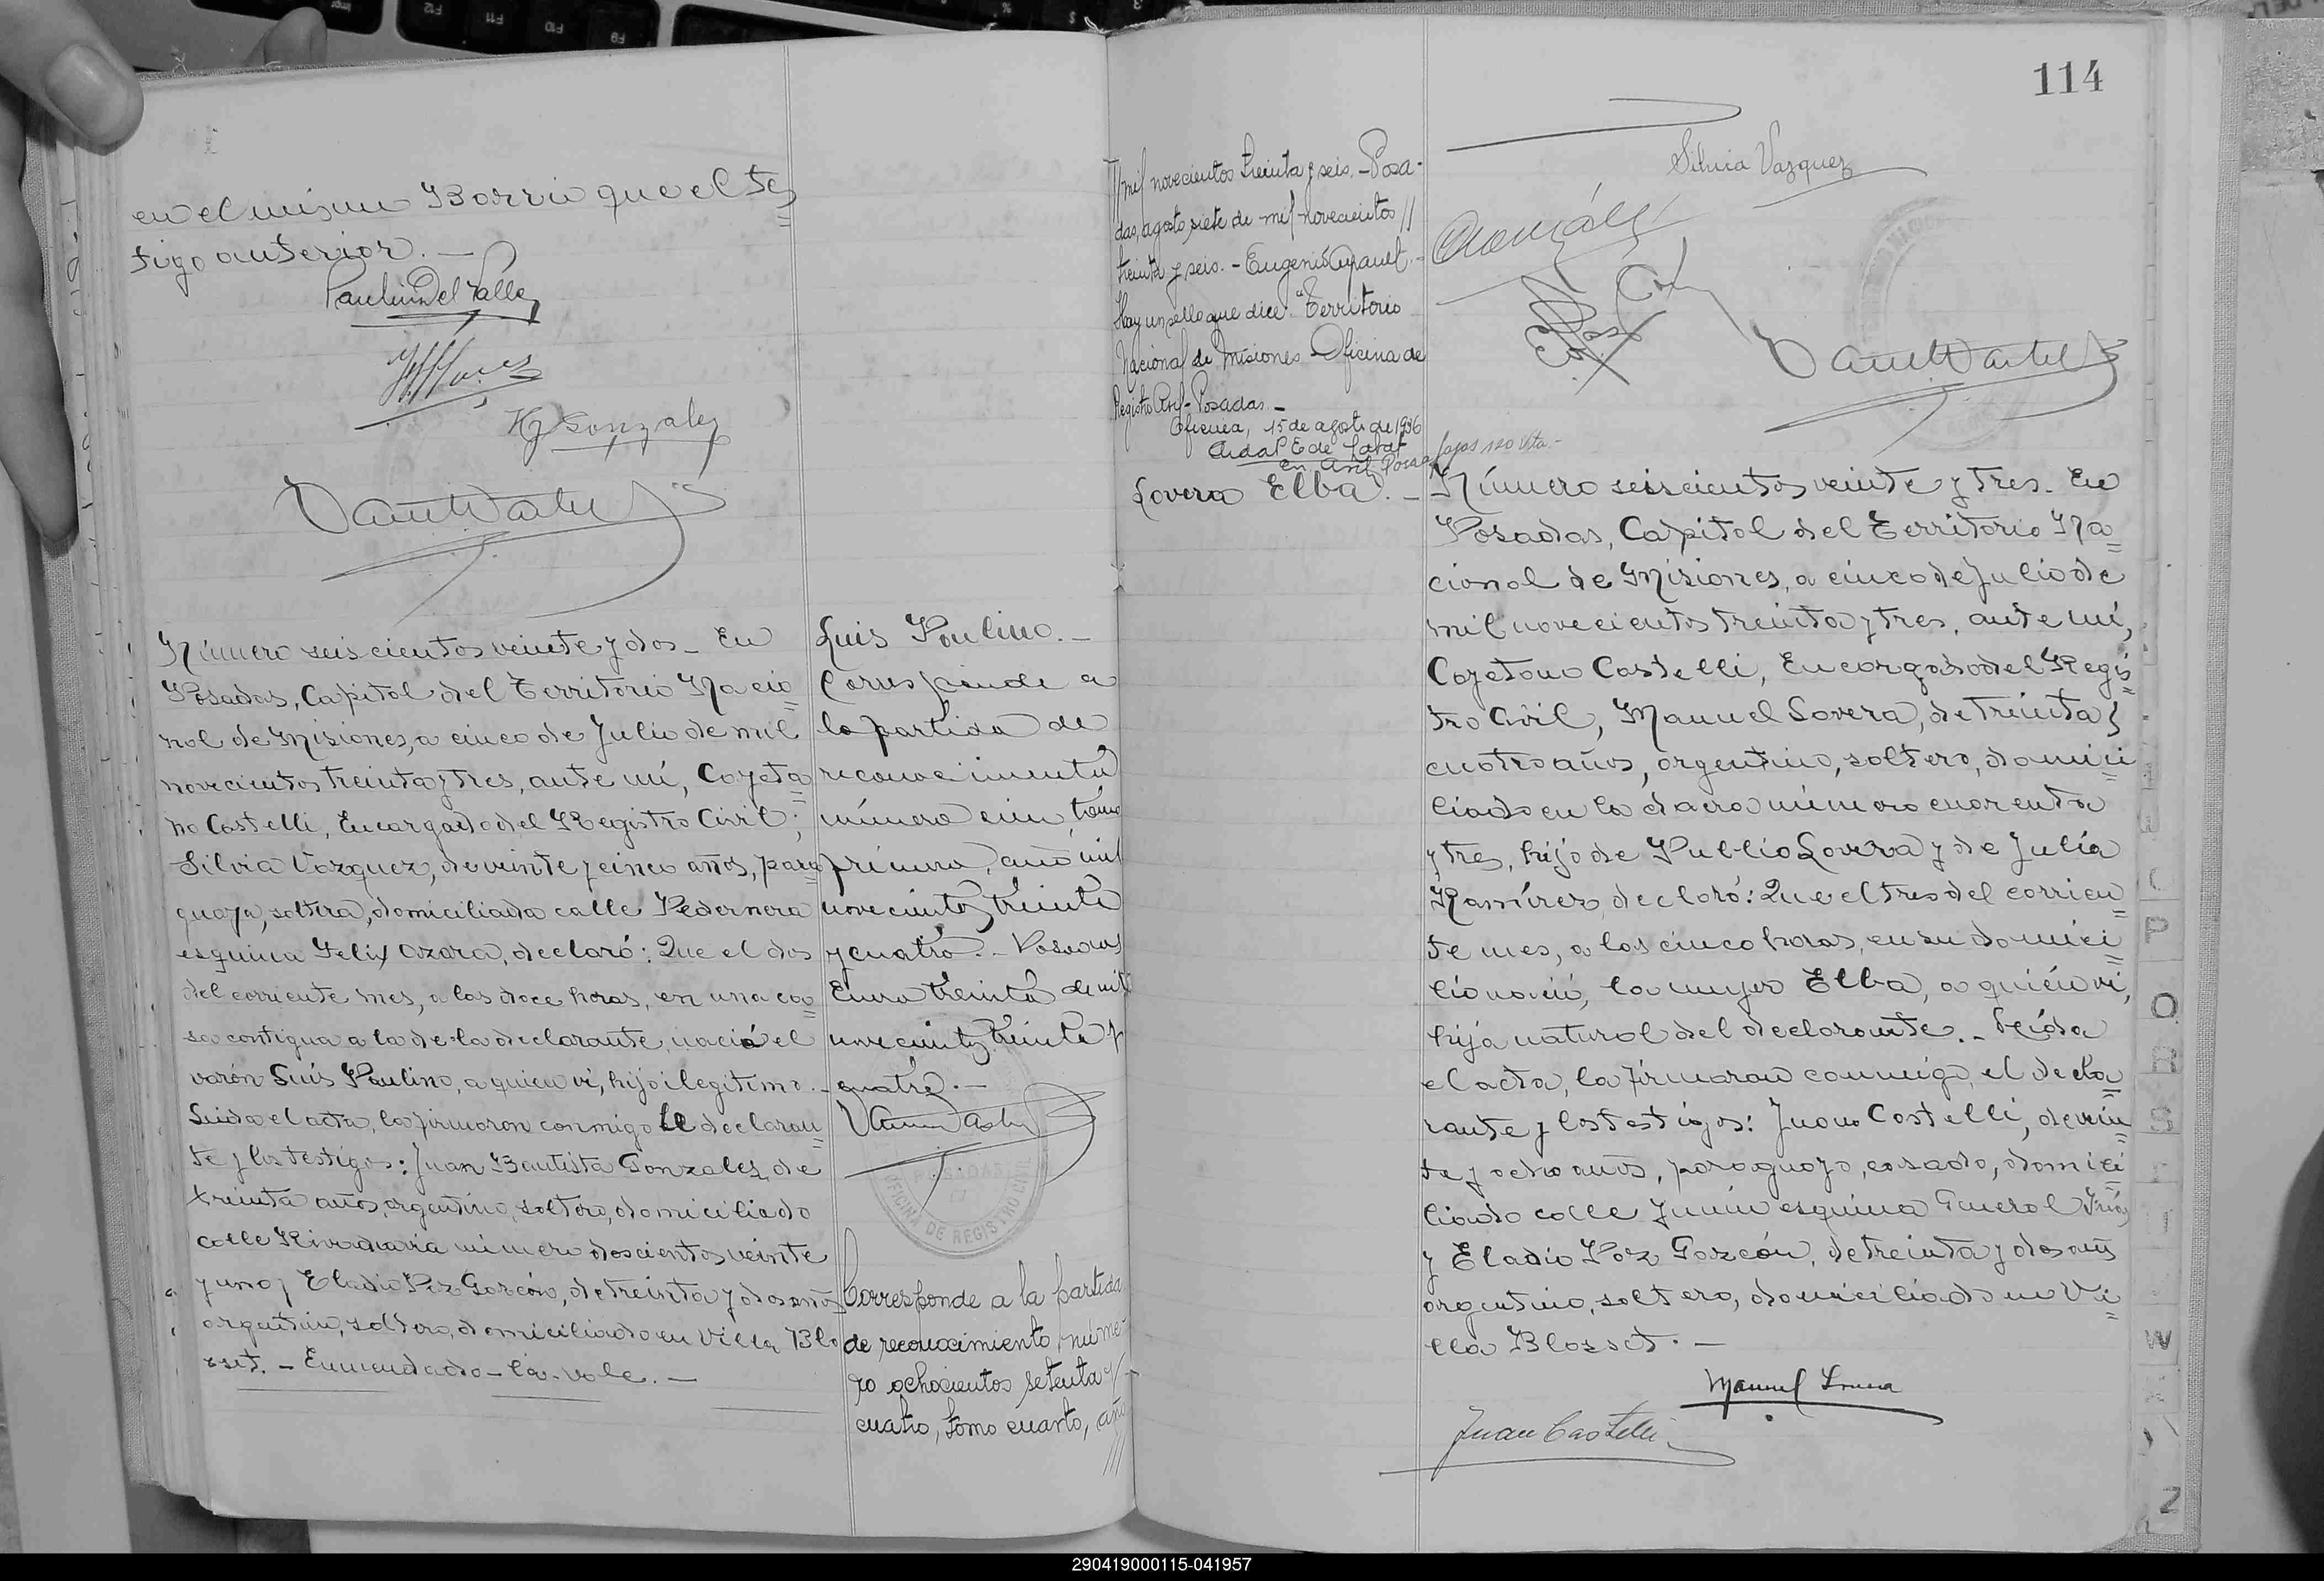 en el mismo Barrio que el tes=
tigo anterior. —
Paulino Del Valle
H J Gonzalez
Número seiscientos veinte y dos_ En
Posadas, Capital del Territorio Nacio=
nal de Misiones, a cinco de Julio de mil
novecientos treinta y tres, ante mí, Cayeta=
no Castelli, Encargado del Registro Civil;
Silvia Vazquez, de veinte y cinco años, para=
guaya, soltera, domiciliada calle Pedernera
esquina Felix Azara, declaró: Que el dos
del corriente mes, a las doce horas, en una ca=
sa contigua a la de la declarante, nació el
varón Luis Paulino, a quien vi, hijo ilegítimo._
Leida el acta, la firmaron conmigo la declaran=
te y los testigos: Juan Bautista Gonzales, de
treinta años, argentino, soltero, domiciliado
calle Rivadavia número doscientos veinte
y uno y Eladio Paz Garzón, de treinta y dos años
argentino, soltero, domiciliado en Villa Blo
sset. — Enmendado - la - vale. —
Luis Paulino. —
Corresponde a
la partida de
reconocimiento
número cien, tomo
primero, año mil
novecientos treinta
y cuatro. - Posadas
Enero treinta de mil
novecientos treinta y
cuatro. —
POSADAS
OFICINA DE REGISTRO CIVIL
Corresponde a la partida
de reconocimiento núme-
ro ochocientos setenta y
cuatro, tomo cuarto, año
///
114
//mil novecientos treinta y seis. - Posa-
das, agosto siete de mil novecientos //
treinta y seis. - Eugenio Ayault. -
Hay un sello que dice: "Territorio
Nacional de Misiones - Oficina de
Registro Civil - Posadas. —
Oficina, 15 de agosto de 1936
Silvia Vazquez
González
Lovera Elba. —
Número seiscientos veinte y tres. En
Posadas, Capital del Territorio Na=
cional de Misiones, a cinco de Julio de
mil novecientos treinta y tres, ante mí,
Cayetano Castelli, Encargado del Regis=
tro Civil, Manuel Lovera, de treinta y
cuatro años, argentino, soltero, domici=
liado en la chacra número cuarenta
y tres, hijo de Publio Lovera y de Julia
Ramírez, declaró: Que el tres del corrien=
te mes, a las cinco horas, en su domici=
lio nació, la mujer Elba, a quién vi,
hija natural del declarante. - Leída
el acta, la firmaron conmigo, el decla=
rante y los testigos: Juan Castelli, de vein=
te y ocho años, paraguayo, casado, domici=
liado calle Junín esquina General Frías
y Eladio Paz Garzón, de treinta y dos años
argentino, soltero, domiciliado en Vi=
lla Blosset. —
Manuel Lovera
Juan Castelli
P
O
R
S
W
Z
290419000115-041957